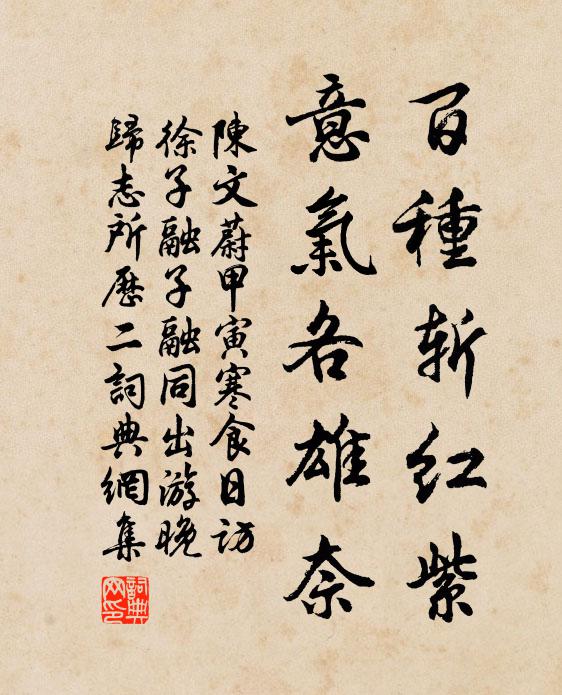 百種斬紅紫
意氣各雄奈
陳文蔚甲寅寒食日訪
徐子融子融同出游晚
歸志所歷二詞典網集
詞典网印